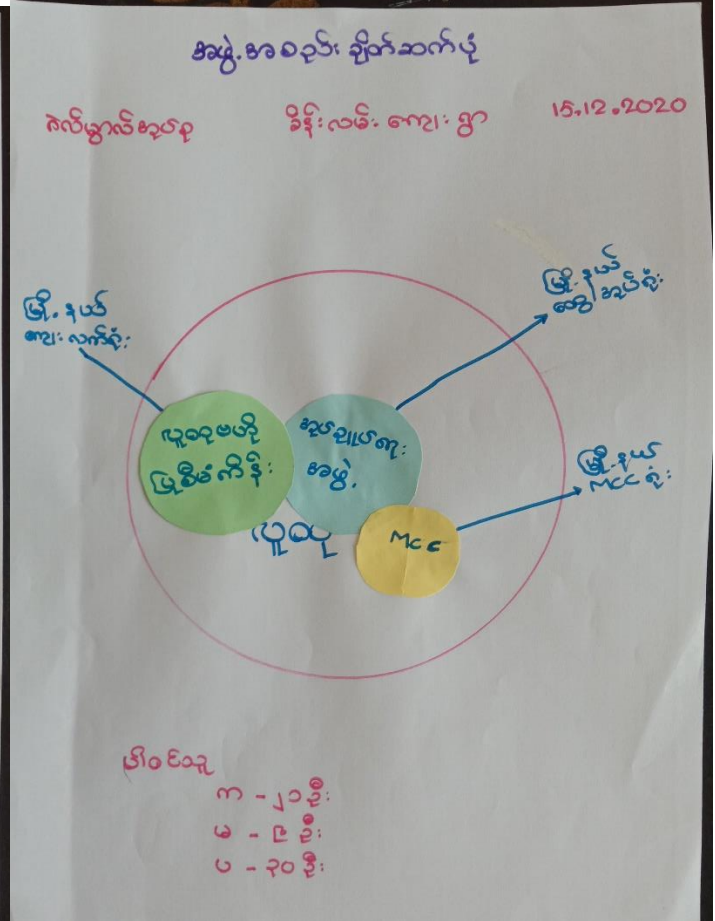 အဖွဲ့အစည်းချိတ်ဆက်ပုံ
ဂလိမွှာလိအုပ်စု ခိန်းလမ်းကျေးရွာ 15.12.2020
မြို့နယ်
ကျေးလက်ရုံး
မြို့နယ်
ထွေအုပ်ရုံး
လူထုဗဟို
ပြုစီမံကိန်း
အုပ်ချုပ်ရေး
အဖွဲ့
မြို့နယ်
MCC ရုံး
MCC
လူထု
ပါဝင်သူ
က - ၂၁ဦး
မ - ၉ ဦး
ပ - ၃၀ ဦး